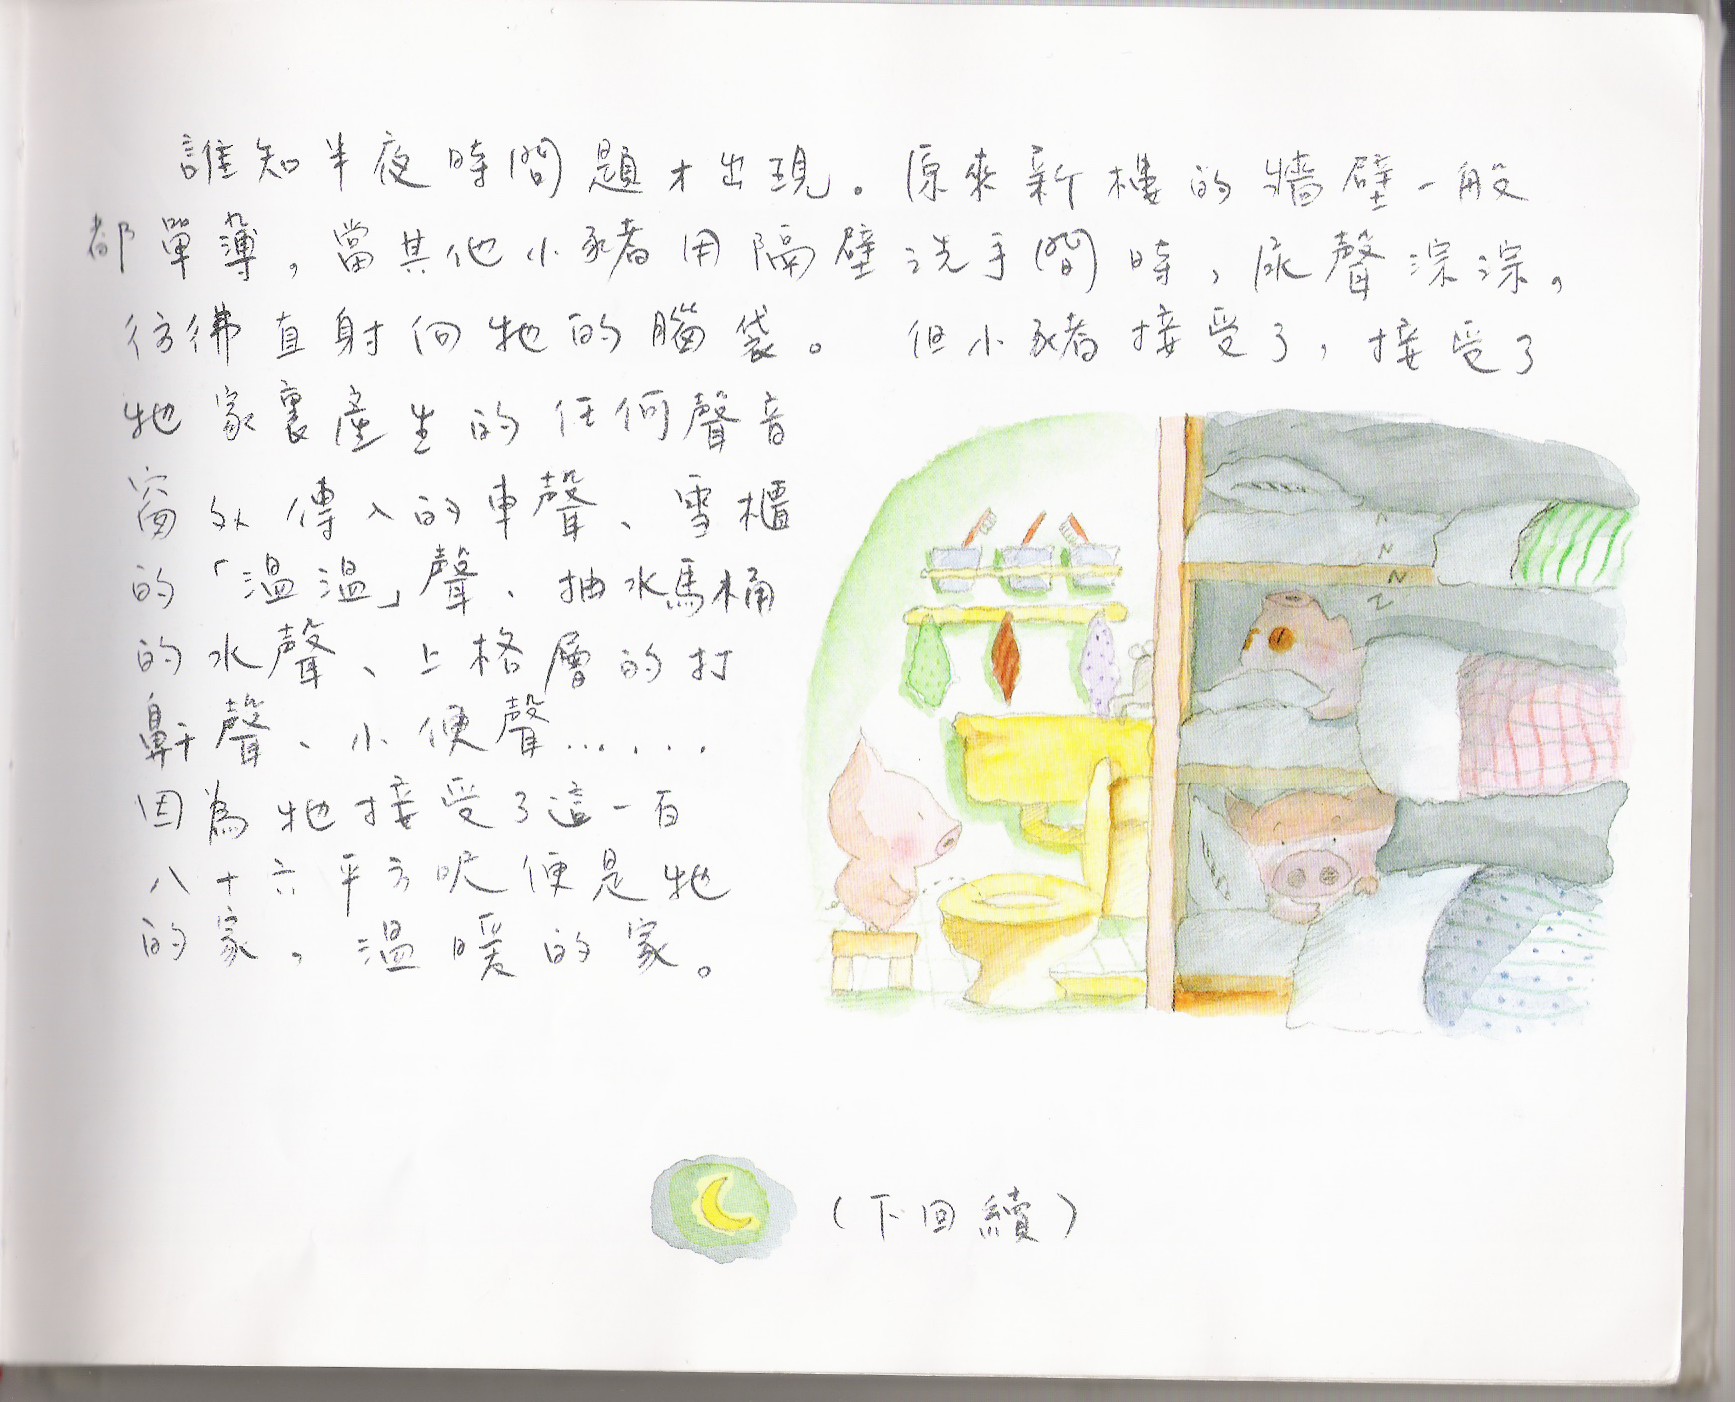 誰知半夜時間題才出現。原來新樓的牆壁一般
都單薄，當其他小豬用隔壁洗手間時，尿聲淙淙，
彷彿直射向牠的腦袋。但小豬接受了，接受了
牠家裏產生的任何聲音
窗外傳入的車聲、雪櫃
的「溫溫」聲、抽水馬桶
的水聲、上格層的打
鼻干聲、小便聲......
因為牠接受了這一百
八十六平方呎便是牠
的家，溫暖的家。
z z z z
（下回續）